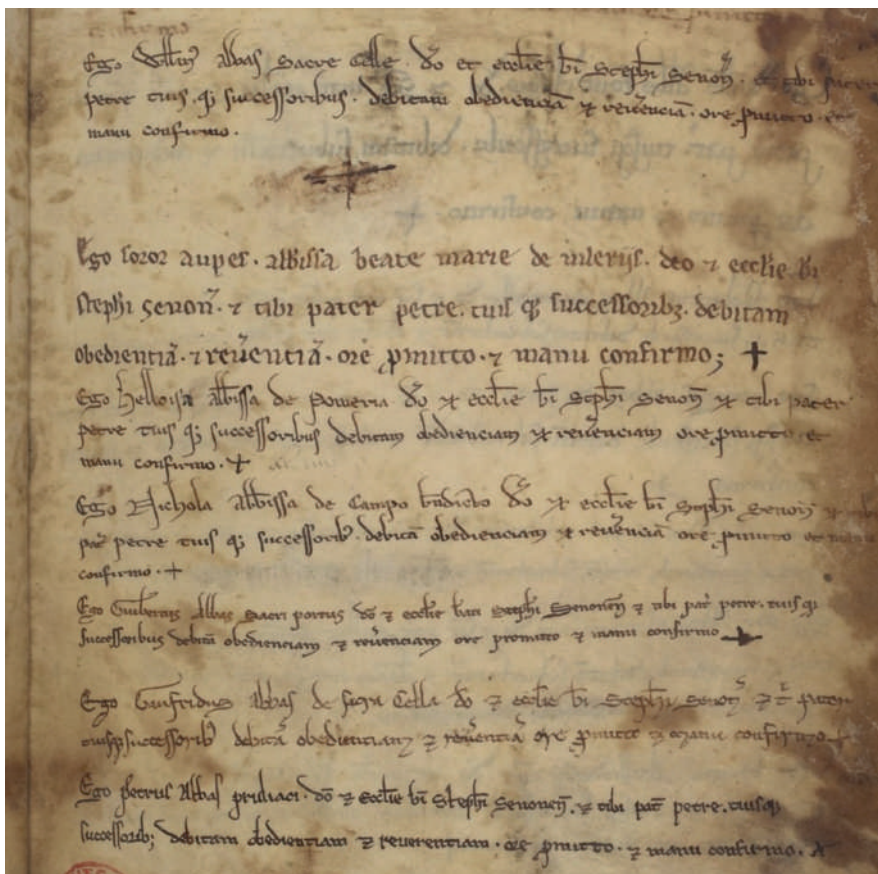 Ego Willms abbas Sacre Celle. do et ecclie bi Stephi Senon. et tibi pater
petre tuis. q; successoribus. debitam obedienciā ⁊ reuenciā. ore pmitto. et
manu confirmo.
Ego soror aupes. abbissa beate marie de. deo ⁊ ecclie bi
stephi senon. ⁊ tibi pater petre. tuis q; successorib; debitam
obedientiā. ⁊ reuentiā. ore pmitto. ⁊ manu confirmo; +
Ego helloisa abbissa de Poweria do ⁊ ecclie bi Stephi Senon ⁊ tibi pater
petre tuis q; successoribus debitam obedienciam ⁊ reuenciam ore pmitto et
manu confirmo. +
Ego Nichola abbissa de Campo bndicto do ⁊ ecclie bi Stephi Senon ⁊ tibi
pat petre tuis q; successorib. debitā obedienciam ⁊ reuenciā ore pmitto et manu
confirmo. +
Ego abbas Sacri portus do ⁊ ecclie bati Stephi Senonen ⁊ tibi pat petre. tuisq;
successoribus debitā obedienciam ⁊ reuenciam ore promitto ⁊ manu confirmo +
Ego Gaufridus abbas de Cella do ⁊ ecclie bi Stephi Senon ⁊ t pater
tuisq; successorib debitā obedientiam ⁊ reuentiā ore pmitto ⁊ manu confirmo +
Ego petrus Abbas pruliaci. do ⁊ Ecclie bi Stephi Senonen. ⁊ tibi pat petre. tuisq;
successorib; debitam obedientiam ⁊ reuerentiam. ore pmitto. ⁊ manu confirmo. +